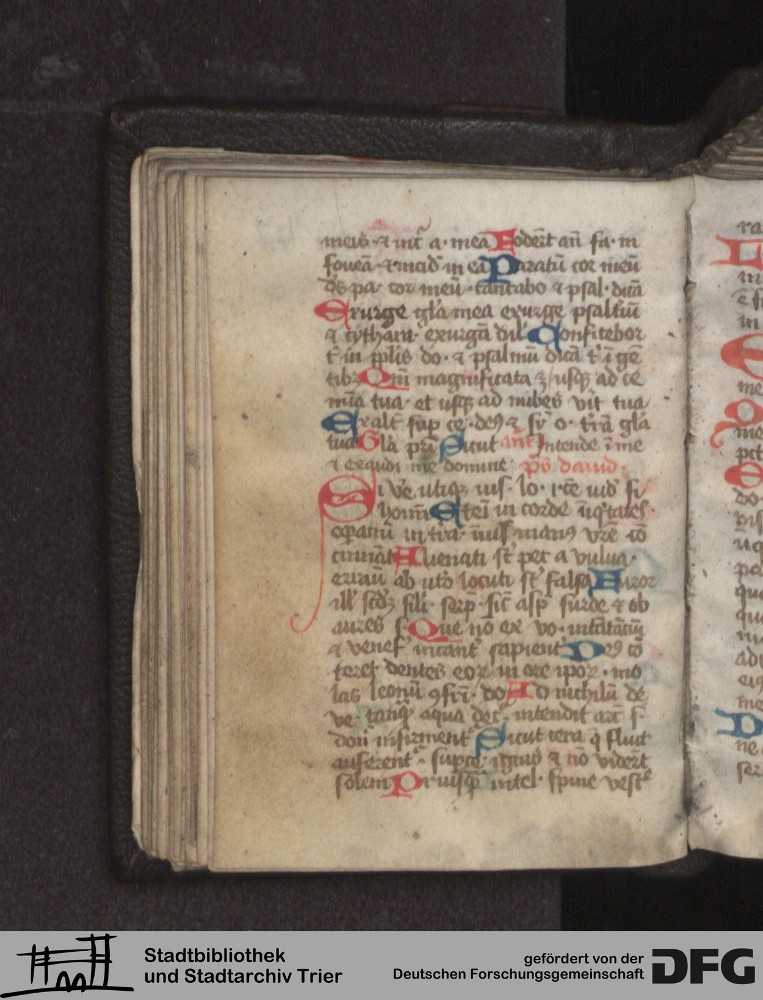 meis · et inc̄ a · meā Foder̄t an̄ fa · m
foueā · et incid̄ in eā Paratū cor meū
ds̄ pa · cor meū · cantabo et psal · dicā
Exurge gl̄a mea exurge psaltiū
et cythara · exurgā dil̄ Confitebor
t̄ in pplīs do · et psalmū dicā t̄ ī gē
tibȝ Qm̄ magnificata ē usqȝ ad ce
mīa tua · et usqȝ ad nubes vīt tua
Exalt̄ sup ce · deꝰ et sr̄ o · trā gl̄a
tua Gl̄a pr̄i Sicut an̄t Intende ī me
et exaudi me domine ps̄ dauid ·
Si ve utiqȝ ius · lo · rc̄e iud̄ fi
hoīm̄ Eteī in corde īiq̄tates
opatiū in trā · īius̄ manꝰ vr̄e cō
cinnāt Alienati st̄ pec a vulua ·
errau̅ ab uto̅ locuti st̄ falsa Furor
ill̄ scd̄ȝ sili · serp̄ · sic̄ asp̄ surde et ob
aures s̄ Que nō ex · vo · incātātiū
et venef̄ incant̄ sapient̄ Deꝰ cō
teret dentes eoꝝ in ore ipoꝝ · mo
las leonū ꝯfr̄i · do Ad nichilū de
ve · tāqȝ aqua dec̄ · intendit arc̄ s̄
don̄ infirment̄ Sicut cera q̄ fluit
auferent̄ · supce · ignis et nō vider̄t
solem Priusq̄ intel · spine vest̄
Stadtbibliothek
und Stadtarchiv Trier
gefördert von der
Deutschen Forschungsgemeinschaft
DFG